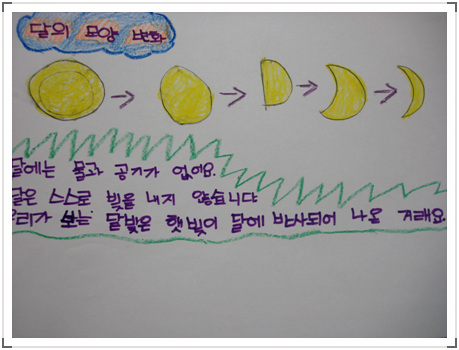 달의 모양 변화
달에는 물과 공기가 없어요.
달은 스스로 빛을 내지 않습니다
우리가 보는 달빛은 햇빛이 달에 반사되어 나온 거래요.